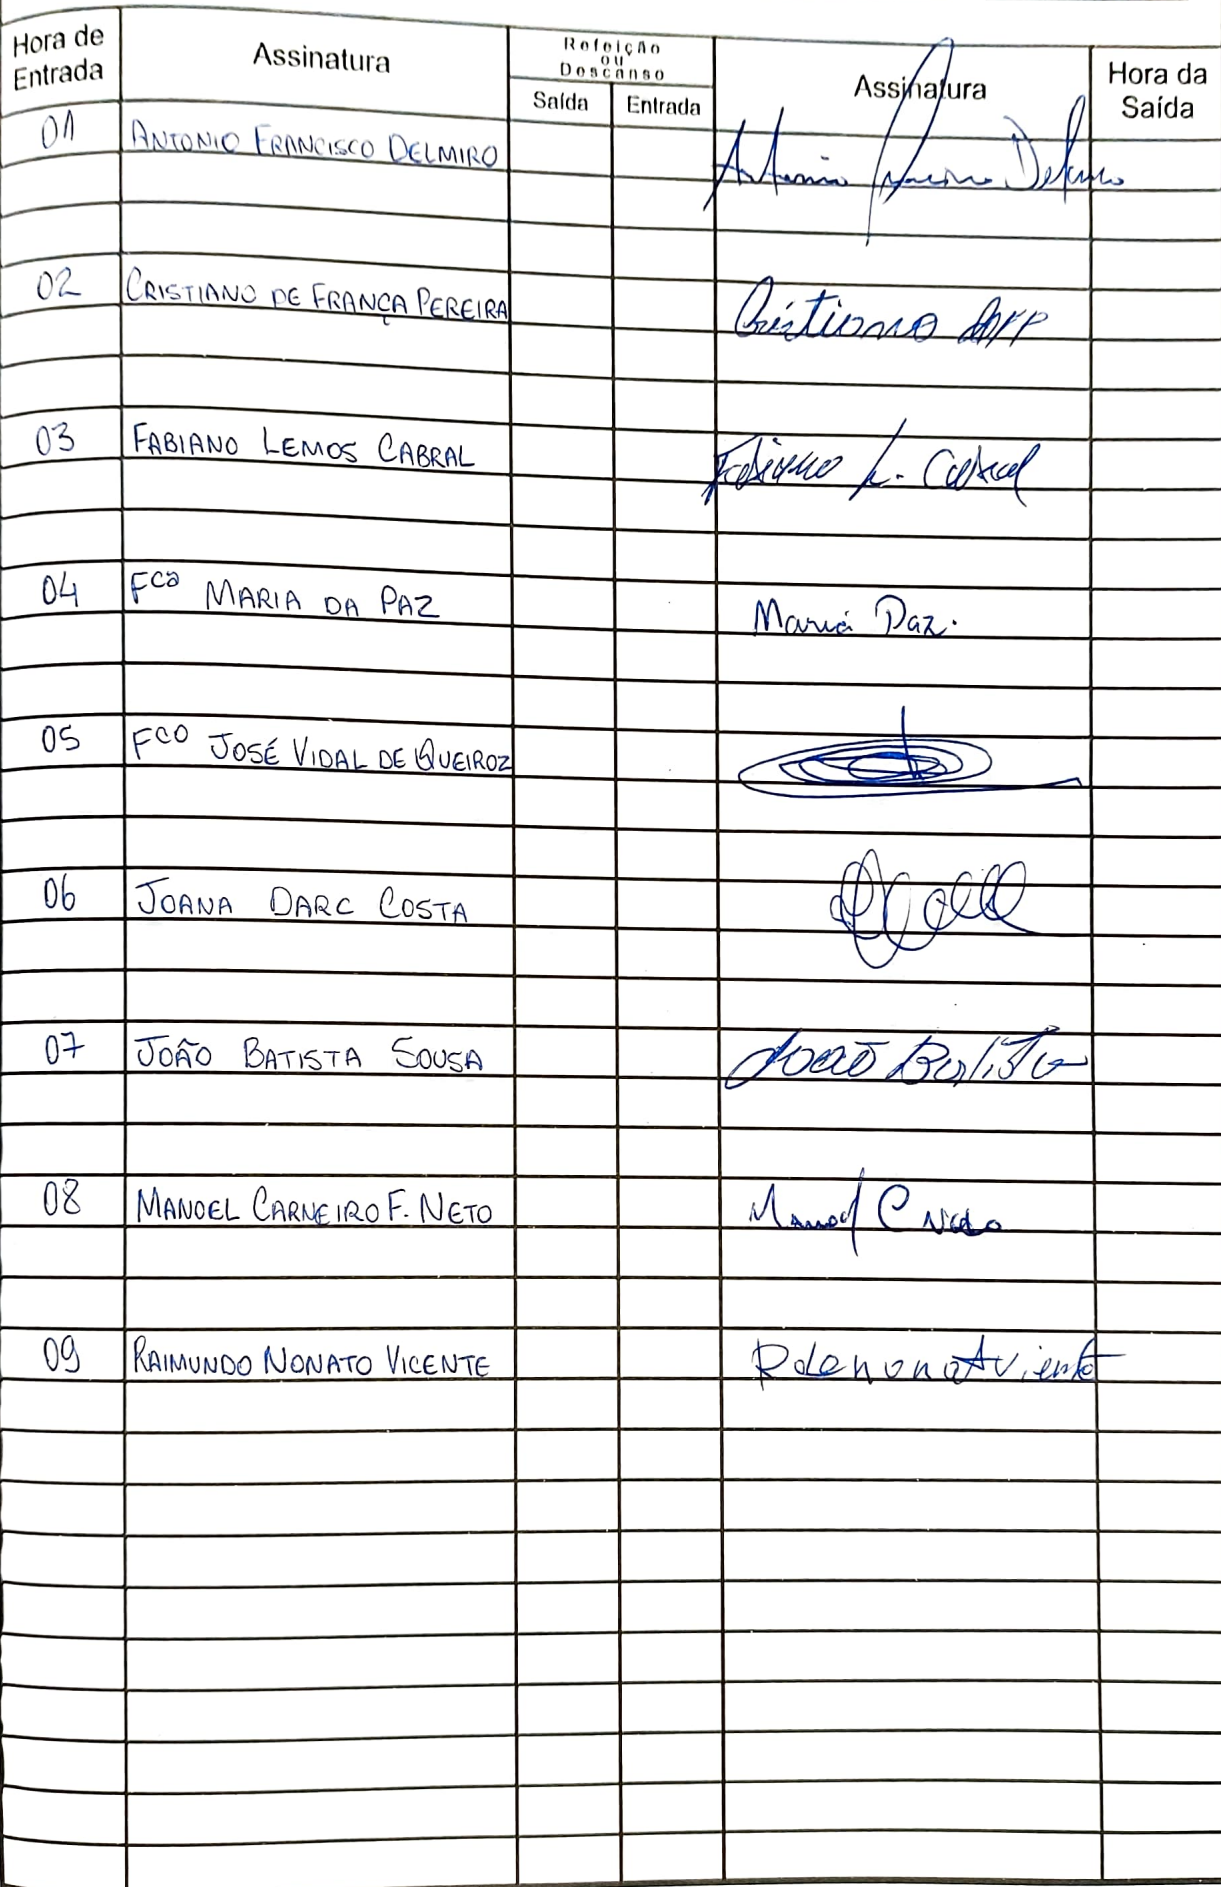 Hora de Entrada Assinatura Refeição ou Descanso Saída Entrada Assinatura Hora da Saída
01 ANTONIO FRANCISCO DELMIRO Antonio Francisco Delmiro
02 CRISTIANO DE FRANÇA PEREIRA Cristiano
03 FABIANO LEMOS CABRAL Fabiano L. Cabral
04 Fca MARIA DA PAZ Maria Paz.
05 Fco JOSÉ VIDAL DE QUEIROZ
06 JOANA DARC COSTA
07 JOÃO BATISTA SOUSA João Batista
08 MANOEL CARNEIRO F. NETO Manoel C
09 RAIMUNDO NONATO VICENTE